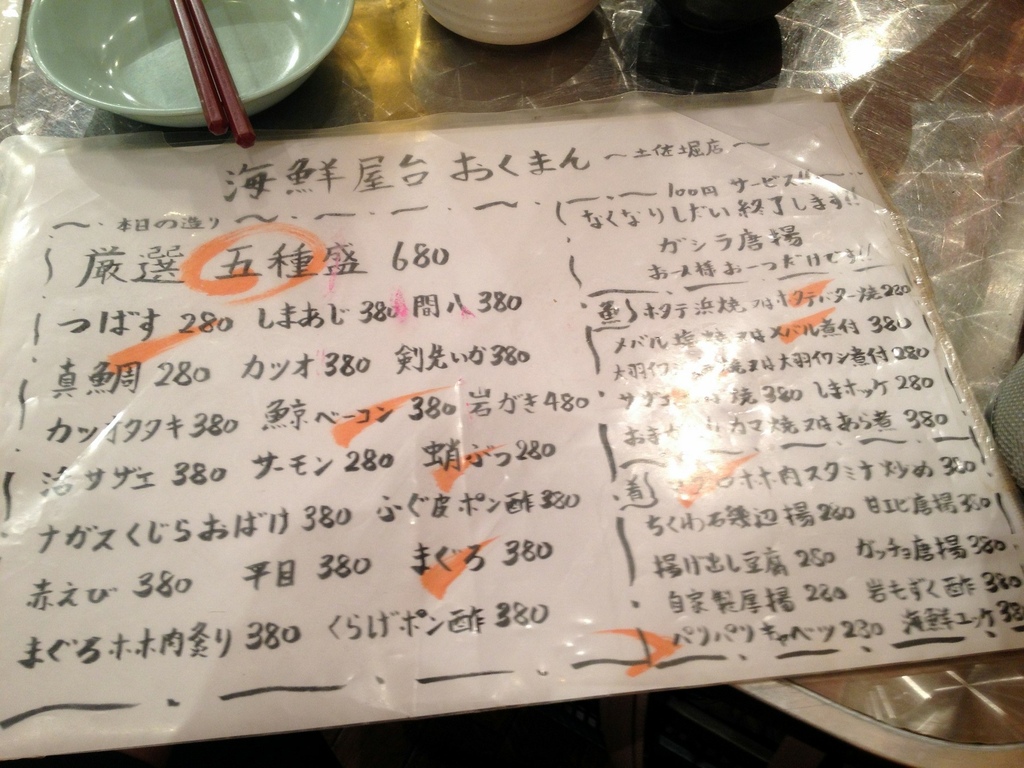 海鮮屋台 おくまん 〜土佐堀店〜
本日の造り
厳選 五種盛 680
つばす 280 しまあじ 380 間八 380
真鯛 280 カツオ 380 剣先いか 380
カツオタタキ 380 鯨ベーコン 380 岩がき 480
活サザエ 380 サーモン 280 蛸ぶつ 280
ナガスくじらおばけ 380 ふぐ皮ポン酢 380
赤えび 380 平目 380 まぐろ 380
まぐろホホ肉炙り 380 くらげポン酢 380
100円 サービス!!
なくなりしだい終了します!!
ガシラ唐揚
お一人様お一つだけです!!
ホタテ浜焼又はホタテバター焼 280
メバル塩焼又はメバル煮付 380
大羽イワシ 焼又は大羽イワシ煮付 280
サザエ 焼 380 しまホッケ 280
カマ焼又はあら煮 380
ホホ肉スタミナ炒め 380
ちくわ石磯辺揚 280 甘エビ唐揚 380
揚げ出し豆腐 280 ガッチョ唐揚 380
自家製厚揚 280 岩もずく酢 380
パリパリキャベツ 230 海鮮ユッケ 38